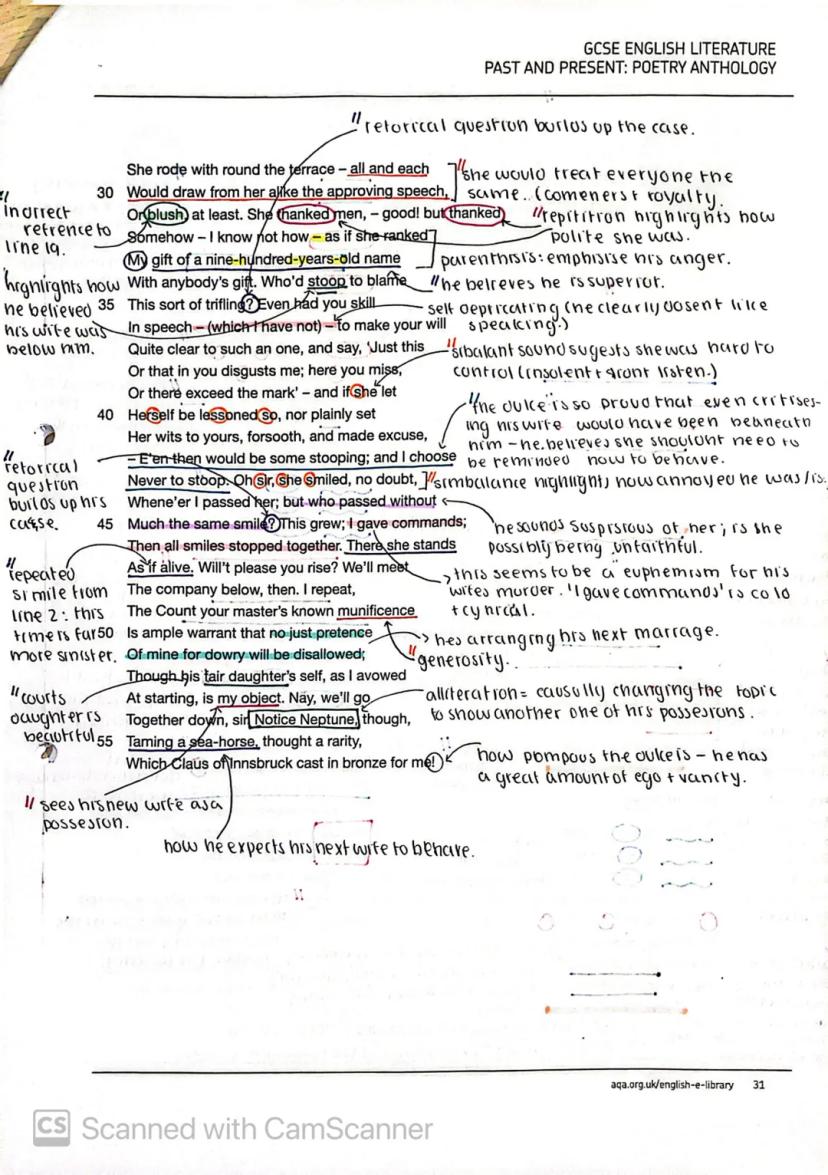 GCSE ENGLISH LITERATURE
PAST AND PRESENT: POETRY ANTHOLOGY
" retorical question builds up the case.
She rode with round the terrace – all and each
30 Would draw from her alike the approving speech,
Or blush, at least. She thanked men, – good! but thanked
Somehow – I know not how – as if she ranked
My gift of a nine-hundred-years-old name
With anybody's gift. Who'd stoop to blame
35 This sort of trifling? Even had you skill
In speech – (which I have not) – to make your will
Quite clear to such an one, and say, 'Just this
Or that in you disgusts me; here you miss,
Or there exceed the mark' – and if she let
40 Herself be lessoned so, nor plainly set
Her wits to yours, forsooth, and made excuse,
– E'en then would be some stooping; and I choose
Never to stoop. Oh sir, she smiled, no doubt,
Whene'er I passed her; but who passed without
45 Much the same smile? This grew; I gave commands;
Then all smiles stopped together. There she stands
As if alive. Will't please you rise? We'll meet
The company below, then. I repeat,
The Count your master's known munificence
50 Is ample warrant that no just pretence
Of mine for dowry will be disallowed;
Though his fair daughter's self, as I avowed
At starting, is my object. Nay, we'll go
Together down, sir. Notice Neptune, though,
55 Taming a sea-horse, thought a rarity,
Which Claus of Innsbruck cast in bronze for me!
"
inorrect
refrence to
line 19.
highlights how
he believed
his wife was
below him.
"
retorical
question
builds up his
" repeated
simile from
line 2: this
time is far
more sinister.
" courts
daughter is
beautiful
" she would treat everyone the
same.. (comeners + royalty.
" repitition highlights how
polite she was.
parenthisis: emphisise his anger.
" he believes he is superior.
self depricating (he clearly dosent like
speaking.)
" sibalant sound sugests she was hard to
control (insolent + didnt listen.)
" the duke is so proud that even critises-
ing his wife would have been beaneath
him – he believes she shouldnt need to
be reminded how to behave.
" simbalance highlights how annoyed he was/is.
he sounds suspisious of her; is she
possibly being unfaithful.
this seems to be a euphemism for his
wifes murder. 'I gave commands' is cold
+ cynical.
hes arranging his next marrage.
" generosity.
alliteration = causully changing the topic
to show another one of his possesions.
how pompous the duke is – he has
a great amount of ego + vanity.
" sees his new wife as a
possesion.
how he expects his next wife to behave.
aqa.org.uk/english-e-library 31
CS Scanned with CamScanner